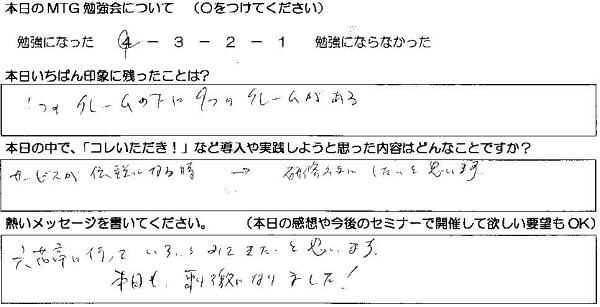 本日のMTG勉強会について （〇をつけてください）
勉強になった 4 － 3 － 2 － 1 勉強にならなかった
本日いちばん印象に残ったことは？
1つの クレームの下に 9つの クレームがある
本日の中で、「コレいただき！」など導入や実践しようと思った内容はどんなことですか？
サービスが 伝説になる時 → 研修 したいと思います。
熱いメッセージを書いてください。 （本日の感想や今後のセミナーで開催して欲しい要望もOK）
六花亭に行って いろいろみてきたいと思います。
本日も、刺激になりました！